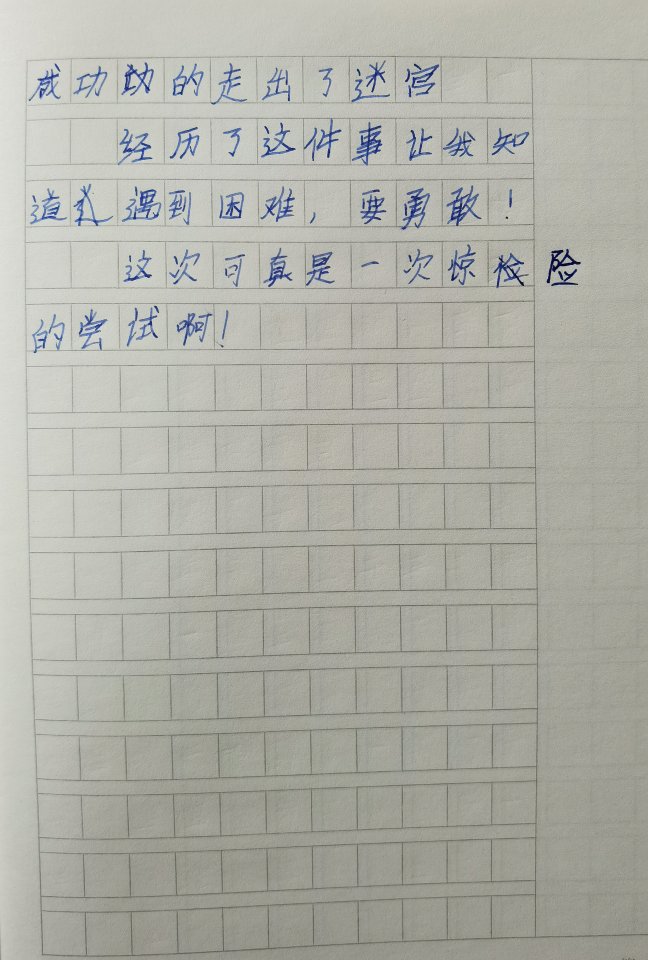 成功的走出了迷宫
经历了这件事让我知
道遇到困难，要勇敢！
这次可真是一次惊险
的尝试啊！